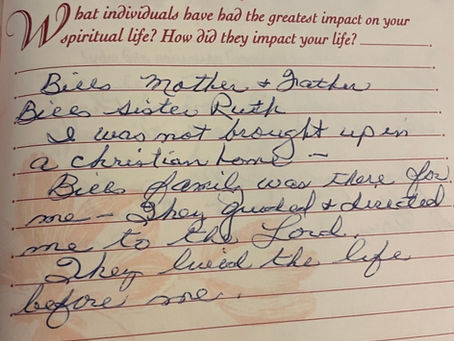 What individuals have had the greatest impact on your
spiritual life? How did they impact your life?
Bills Mother + Father
Bills sister Ruth
I was not brought up in
a christian home –
Bills family was there for
me – They guided + directed
me to the Lord.
They lived the life
before me.